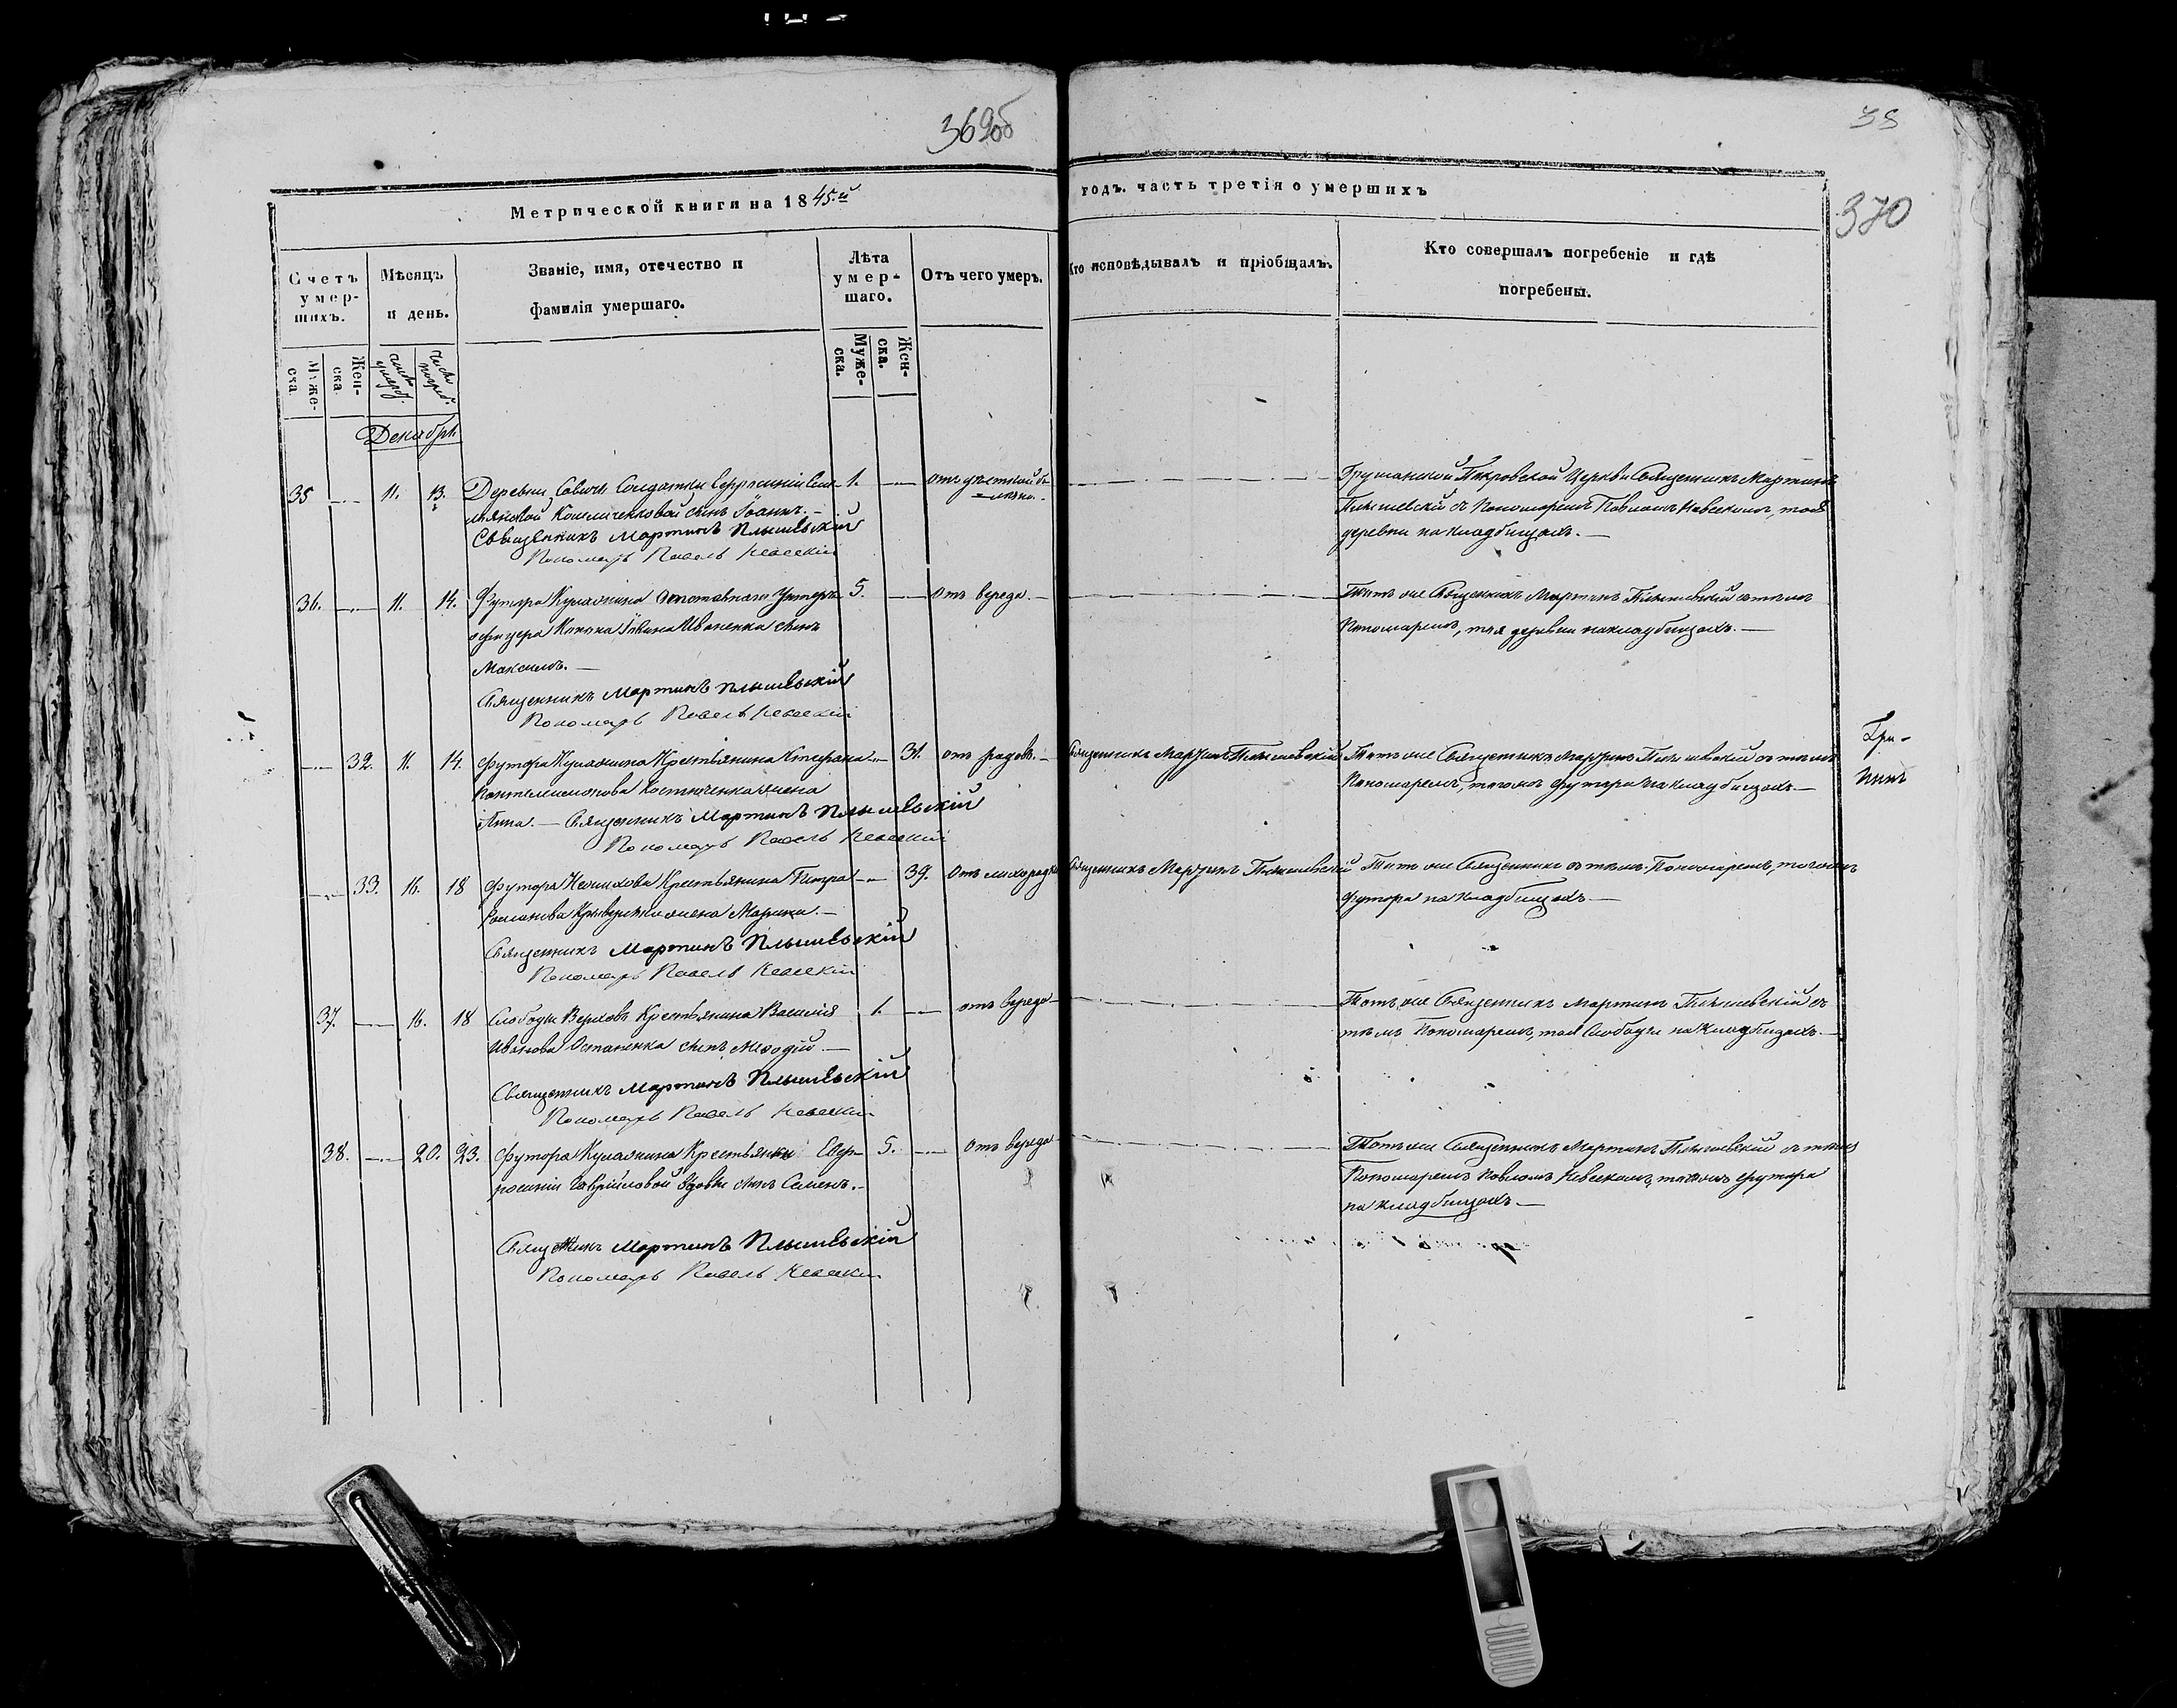 369об
38
370
Метрической книги на 1845.й
годъ. часть третія о умершихъ
Счетъ умер-шихъ.
Мѣсяцъ и день.
Званіе, имя, отечество и фамилія умершаго.
Лѣта умер-шаго.
Отъ чего умеръ.
Кто исповѣдывалъ и пріобщалъ.
Кто совершалъ погребеніе и гдѣ погребены.
Муже-ска
Жен-ска
Муже-ска.
Жен-ска.
Декабрь
35 11. 13. Деревни Савичъ Солдатки 1. отъ
сынъ Іоаннъ.
Священникъ Мартинъ Плышевскій
Пономарь Павелъ Невескій
Покровской Церкви Священникъ Мартинъ
Плышевскій съ Пономаремъ Павломъ Невескимъ, тоя
деревни на кладбищахъ.
36. 11. 14. Футора Кулажина отставнаго Унтеръ 5. Отъ вереда
офицера Иваненка сынъ
Максимъ.
Священникъ Мартинъ Плышевскій
Пономарь Павелъ Невескій
Тотъ же Священникъ Мартинъ Плышевскій съ тѣмъ
Пономаремъ, тоя деревни на кладбищахъ.
32. 11. 14. Футора Кулажина Крестьянина Стефана 31. отъ родовъ.
Пантелеимонова Костюченка жена
Анна. Священникъ Мартинъ Плышевскій
Пономарь Павелъ Невескій
Священникъ Мартинъ Плышевскій
Тотъ же Священникъ Мартинъ Плышевскій съ тѣмъ
Пономаремъ, тогожъ футора на кладбищахъ.
33. 16. 18 Футора Крестьянина Петра 39. Отъ лихорадки
Романова жена Марина.
Священникъ Мартинъ Плышевскій
Пономарь Павелъ Невескій
Священникъ Мартинъ Плышевскій
Тотъ же Священникъ съ тѣмъ Пономаремъ, тогожъ
футора на кладбищахъ
37. 16. 18 Слободы Верховъ Крестьянина Василія 1. отъ вереда
Иванова Остапенка сынъ Меѳодій.
Священникъ Мартинъ Плышевскій
Пономарь Павелъ Невескій
Тотъ же Священникъ Мартинъ Плышевскій съ
тѣмъ Пономаремъ, тоя Слободы на кладбищахъ.
38. 20. 23. Футора Кулажина Крестьянки Евф- 5. Отъ вереда
росиніи Гаврійловой Вдовы сынъ Семенъ.
Священникъ Мартинъ Плышевскій
Пономарь Павелъ Невескій
Тотъ же Священникъ Мартинъ Плышевскій съ тѣмъ
Пономаремъ Павломъ Невескимъ, тогожъ футора
на кладбищахъ